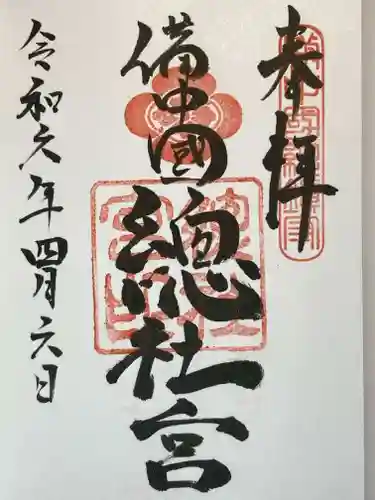 奉拝
備中國総社宮
令和六年四月六日